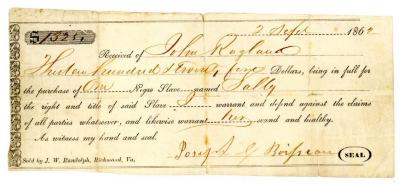 $1325
2 Sept 1862
Received of John Ragland
Thirteen hundred & Twenty five Dollars, being in full for
the purchase of Negro Slave named Sally
the right and title of said Slave warrant and defend against the claims
of all parties whatsoever, and likewise warrant her sound and healthy.
As witness my hand and seal.
Joseph G Boisseau
SEAL
Sold by J. W. Randolph, Richmond, Va.